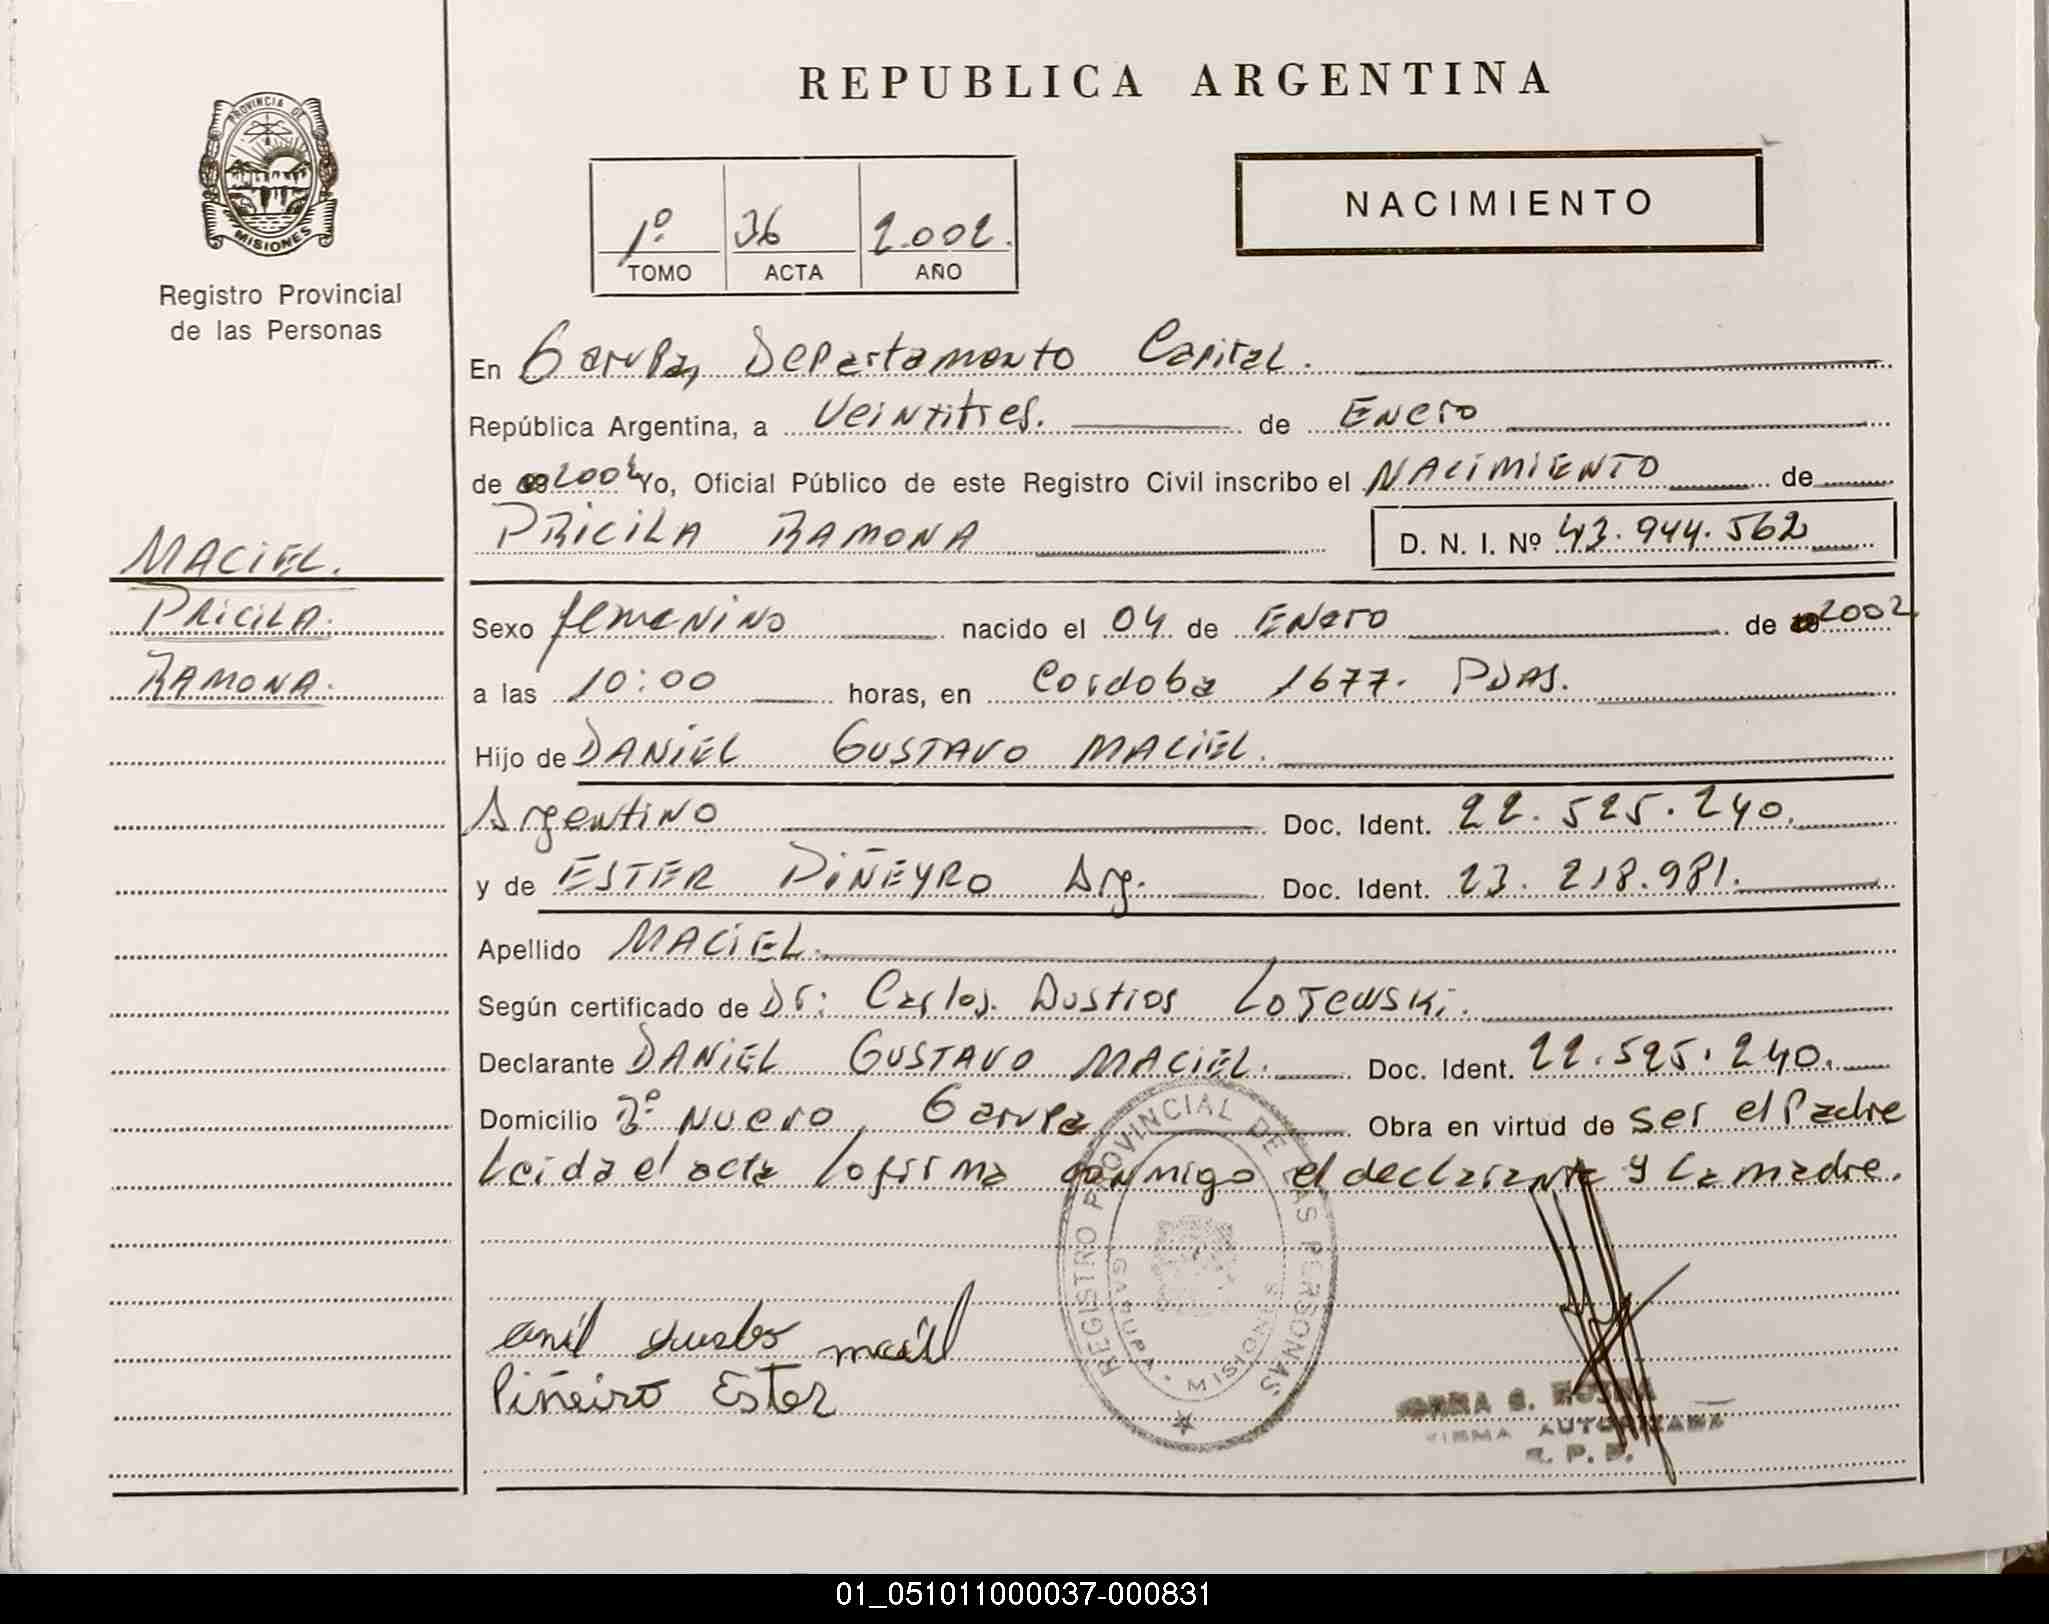 REPUBLICA ARGENTINA
PROVINCIA DE
MISIONES
Registro Provincial
de las Personas
1º 36 2.002.
TOMO ACTA AÑO
NACIMIENTO
En Garupa, Departamento Capital.
República Argentina, a Veintitres. de Enero
de 2002 Yo, Oficial Público de este Registro Civil inscribo el NACIMIENTO de
PRICILA RAMONA D. N. I. Nº 43.944.562
MACIEL.
PRICILA.
RAMONA.
Sexo femenino nacido el 04 de Enero de 2002
a las 10:00 horas, en Cordoba 1677. Pdas.
Hijo de DANIEL GUSTAVO MACIEL.
Argentino Doc. Ident. 22.525.240.
y de ESTER PIÑEYRO Arg. Doc. Ident. 23.218.981.
Apellido MACIEL.
Según certificado de Dr: Carlos Lojewski.
Declarante DANIEL GUSTAVO MACIEL. Doc. Ident. 22.525.240.
Domicilio Bº Nuevo Garupa Obra en virtud de ser el Padre
Leida el acta lo firma conmigo el declarante y la madre.
REGISTRO PROVINCIAL DE LAS PERSONAS
GARUPA - MISIONES
Piñeiro Ester
FIRMA AUTORIZADA
R. P. P.
01_051011000037-000831